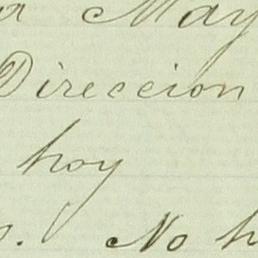 a May
Direccion
hoy
No h